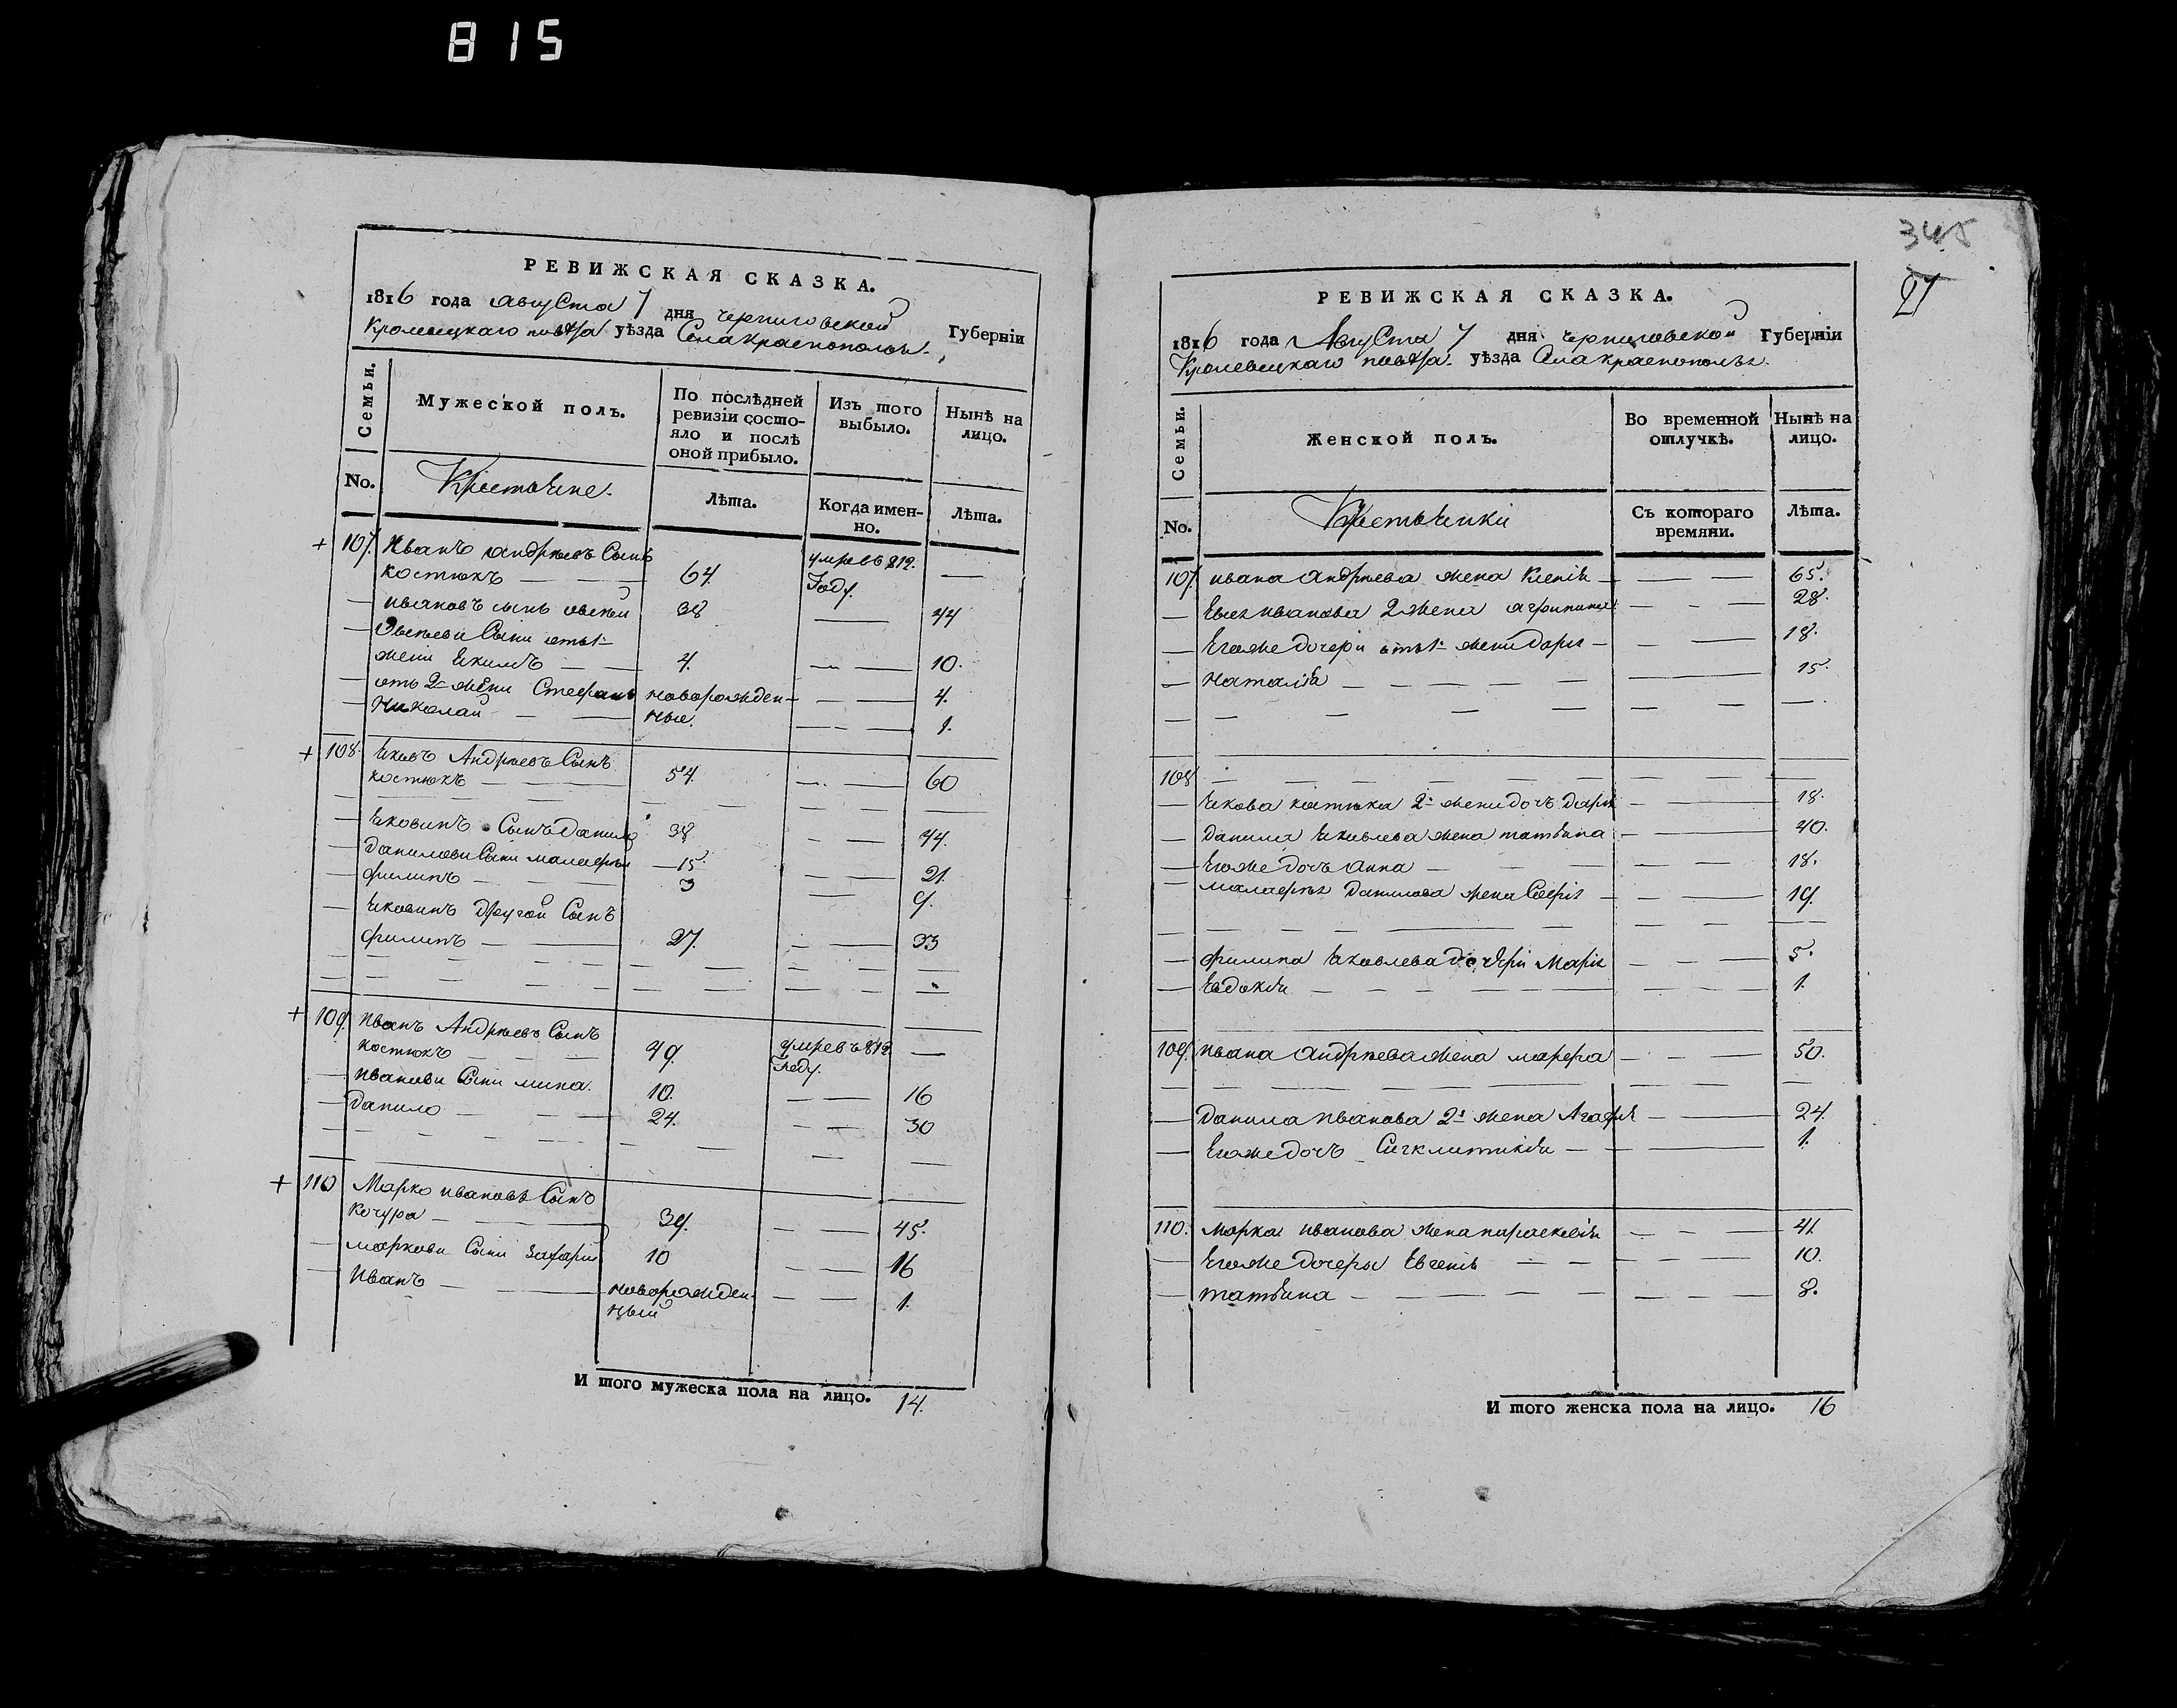 815
РЕВИЖСКАЯ СКАЗКА.
1816 года августа 7 дня черниговской Губернїи
Кролевецкаго повѣта уѣзда Села краснополья.
Семьи.
Мужеской полъ.
По послѣдней ревизїи состояло и послѣ оной прибыло.
Изъ того выбыло.
Нынѣ на лицо.
No.
Крестьяне.
Лѣта.
Когда именно.
Лѣта.
+ 107. Иванъ андреевъ Сынъ умре въ 812.
костюкъ — — 64. Году. —
— ивановъ сынъ овсѣй 38 — 44
— Овсѣеви Сыни отъ 1й
жени якимъ — — 4. — — 10.
— отъ 2й жени Стефанъ новорожден- — — 4.
— николай — — ные. — — 1.
+ 108. яковъ Андреевъ Сынъ
костюкъ — — 54. — — 60
— яковинъ Сынъ данило 38 — — 44.
— даниловы Сыни малафѣй — 15. — — 21.
— филипъ — — — 3 — — 9.
— яковинъ другой Сынъ
филипъ — — 27. — — 33
+ 109. иванъ Андреевъ Сынъ умре въ 812
костюкъ — — — 49. Году. —
— иванови Сыни мина. 10. — — 16
— данило — — — 24. — — 30
+ 110 Марко ивановъ Сынъ
кочура — — 39. — — 45.
— маркови Сыни захарий 10 — — 16
— иванъ — — новорожден- — — 1.
ный
И того мужеска пола на лицо. 14.
345
27
РЕВИЖСКАЯ СКАЗКА.
1816 года Августа 7 дня черниговской Губернїи
Кролевецкаго повѣта. уѣзда Села краснополья.
Семьи.
Женской полъ.
Во временной отлучкѣ.
Нынѣ на лицо.
No.
Крестьянки
Съ котораго времяни.
Лѣта.
107. ивана андреева жена Ксенія — — — 65.
— овсѣя иванова 2 жена агрипина — — — 28.
— Егоже дочери отъ 1й жени дарья — — — 18.
— наталія — — — — — — 15.
108
— якова костюка 2й жени дочъ дарія — — 18.
— данила яковлева жена татяна — — 40.
— Егоже дочъ анна — — — — 18.
— малафѣя данилова жена Софія — — — 19.
— филипа яковлева дочери Марія — — — 5.
— Евдокія — — — — — — — 1.
109. ивана андреева жена марфа — — — 50.
— данила иванова 2я жена Агафія — — 24.
— Егоже дочъ Сигклитикія — — — 1.
110. марка иванова жена параскевія — — — 41.
— Егоже дочеры Евгенія — — — — — 10.
— татяна — — — — — — — — 8.
И того женска пола на лицо. 16